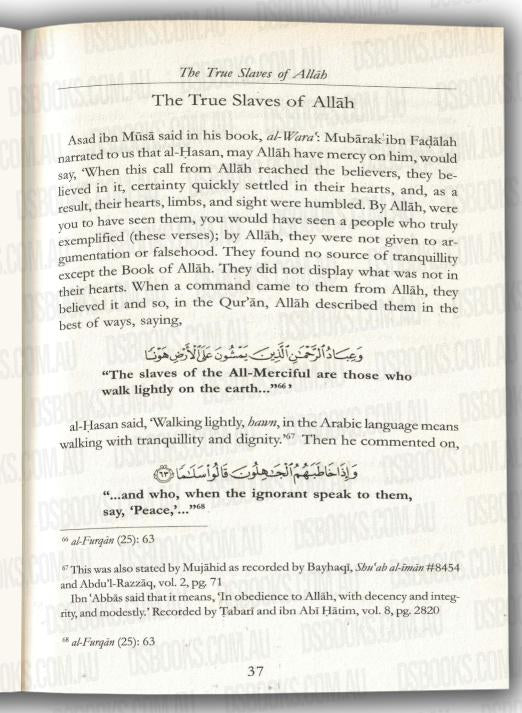 The True Slaves of Allāh
The True Slaves of Allāh
Asad ibn Mūsā said in his book, al-Wara‘: Mubārak ibn Faḍālah
narrated to us that al-Ḥasan, may Allāh have mercy on him, would
say, ‘When this call from Allāh reached the believers, they be-
lieved in it, certainty quickly settled in their hearts, and, as a
result, their hearts, limbs, and sight were humbled. By Allāh, were
you to have seen them, you would have seen a people who truly
exemplified (these verses); by Allāh, they were not given to ar-
gumentation or falsehood. They found no source of tranquillity
except the Book of Allāh. They did not display what was not in
their hearts. When a command came to them from Allāh, they
believed it and so, in the Qur’ān, Allāh described them in the
best of ways, saying,
وَعِبَادُ ٱلرَّحْمَـٰنِ ٱلَّذِينَ يَمْشُونَ عَلَى ٱلْأَرْضِ هَوْنًا
“The slaves of the All-Merciful are those who
walk lightly on the earth...”⁶⁶ ’
al-Ḥasan said, ‘Walking lightly, hawn, in the Arabic language means
walking with tranquillity and dignity.’⁶⁷ Then he commented on,
وَإِذَا خَاطَبَهُمُ ٱلْجَـٰهِلُونَ قَالُوا۟ سَلَـٰمًا ﴿٦٣﴾
“...and who, when the ignorant speak to them,
say, ‘Peace,’...”⁶⁸
⁶⁶ al-Furqān (25): 63
⁶⁷ This was also stated by Mujāhid as recorded by Bayhaqī, Shu‘ab al-īmān #8454
and Abdu’l-Razzāq, vol. 2, pg. 71
Ibn ‘Abbās said that it means, ‘In obedience to Allāh, with decency and integ-
rity, and modestly.’ Recorded by Ṭabarī and ibn Abī Ḥātim, vol. 8, pg. 2820
⁶⁸ al-Furqān (25): 63
37
DSBOOKS.COM.AU